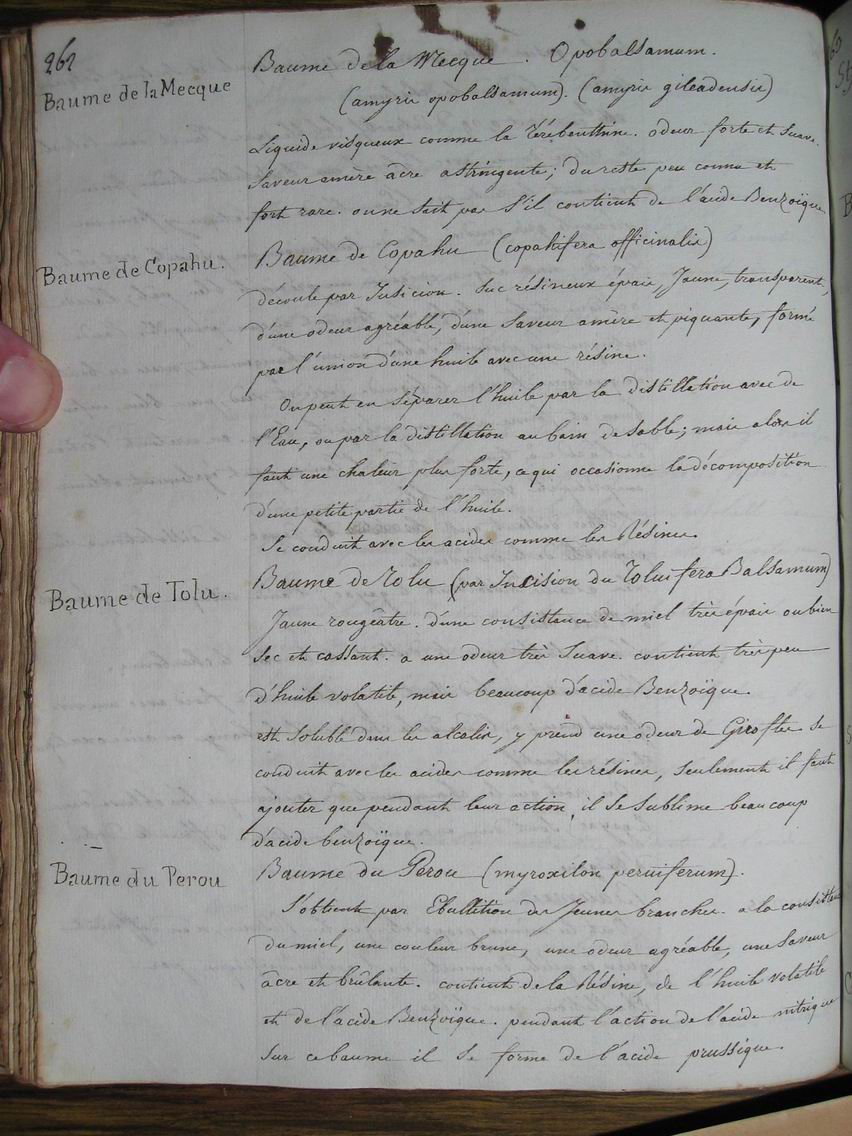 262
Baume de la Mecque
Baume de la Mecque. Opobalsamum.
(amyris opobalsamum). (amyris gileadensis)
Liquide visqueux comme la Térébenthine. odeur forte et suave.
Saveur amère âcre astringente; du reste peu connu et
fort rare. on ne sait pas s'il contient de l'acide Benzoïque
Baume de Copahu.
Baume de Copahu (copahifera officinalis)
découle par Incision. Suc résineux épais, Jaune, transparent,
d'une odeur agréable, d'une saveur amère et piquante, formé
par l'union d'une huile avec une résine.
On peut en séparer l'huile par la distillation avec de
l'Eau, ou par la distillation au bain de sable; mais alors il
faut une chaleur plus forte, ce qui occasionne la décomposition
d'une petite partie de l'huile.
Se conduit avec les acides comme les Résines.
Baume de Tolu.
Baume de Tolu (par Incision du Toluifera Balsamum)
Jaune rougeâtre. d'une consistance de miel très épais ou bien
sec et cassant. a une odeur très suave. contient très peu
d'huile volatile, mais beaucoup d'acide Benzoïque.
est soluble dans les alcalis, y prend une odeur de Girofles se
conduit avec les acides comme les résines, seulement il faut
ajouter que pendant leur action, il se sublime beaucoup
d'acide benzoïque.
Baume du Perou
Baume du Perou (myroxilon peruiferum).
S'obtient par Ebullition des Jeunes branches. a la consistance
du miel, une couleur brune, une odeur agréable, une saveur
âcre et brûlante. contient de la Résine, de l'huile volatile
et de l'acide Benzoïque. pendant l'action de l'acide nitrique
sur ce baume il se forme de l'acide prussique.